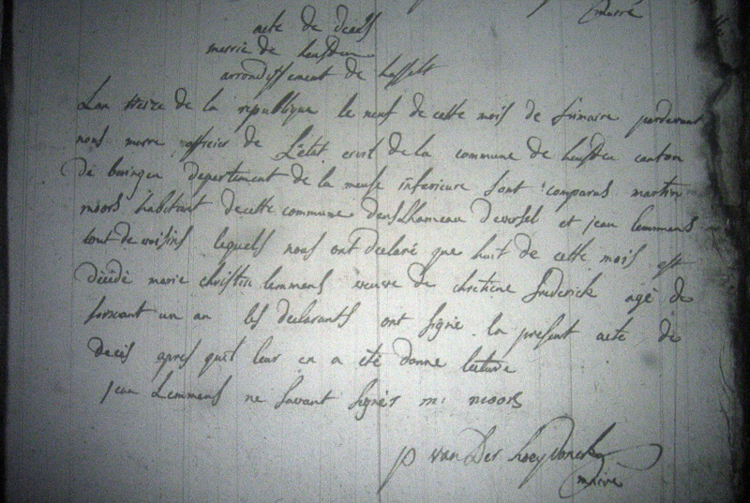 maire
acte de deces
mairie de heusden
arrondissement de hasselt
L'an treize de la republique le neuf de cette mois de frimaire pardevant
nous maire officier de L'état civil de la commune de heusden canton
de beringen departement de la meuse inferieure sont comparus martin
moors habitant de cette commune dans l'hameau d'eversel et jean lemmens
tout de voisins lequels nous ont declaré que huit de cette mois est
décédé marie christine lemmens veuve de chretiene frederick agé de
soixant un an les declarants ont signe la present acte de
deces apres quil leur en a eté donne lecture
jean Lemmens ne savant signér m: moors
p vander hoeydonck
maire